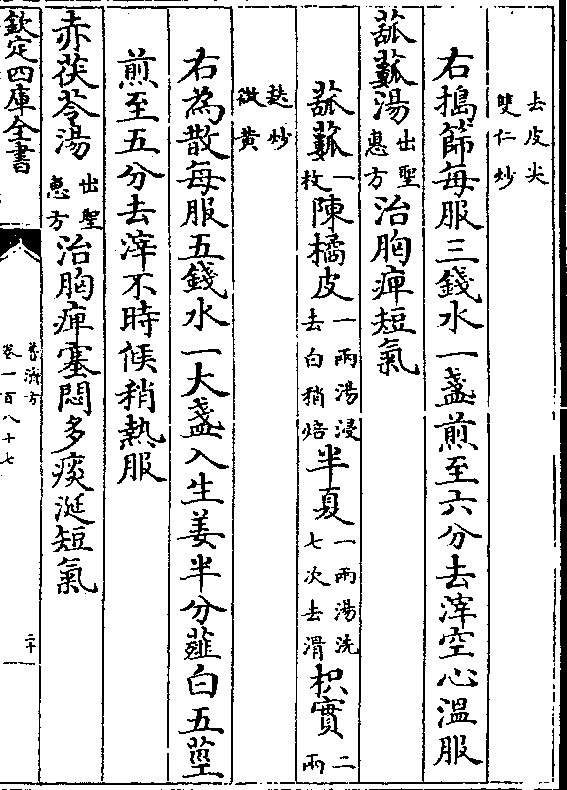 去皮尖
雙仁炒
右搗篩每服三錢水一盞煎至六分去滓空心溫服
蓏蔂湯出聖惠方治胸痺短氣
蓏蔂一枚陳橘皮一兩湯浸去白稍焙半夏一兩湯洗七次去滑枳實二兩
麩炒
微黄
右為散每服五錢水一大盞入生姜半分薤白五莖
煎至五分去滓不時候稍熱服
赤茯苓湯出聖惠方治胸痺塞悶多痰涎短氣
欽定四庫全書
普濟方
卷一百八十七
二十